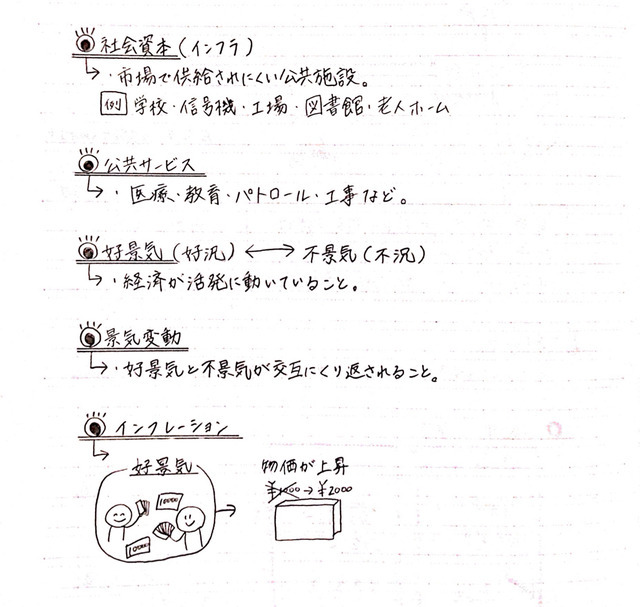 社会資本(インフラ)
・市場で供給されにくい公共施設。
例 学校・信号機・工場・図書館・老人ホーム
公共サービス
・医療・教育・パトロール・工事など。
好景気(好況)⟷不景気(不況)
・経済が活発に動いていること。
景気変動
・好景気と不景気が交互にくり返されること。
インフレーション
好景気
物価が上昇
¥1000→¥2000
10000
10000